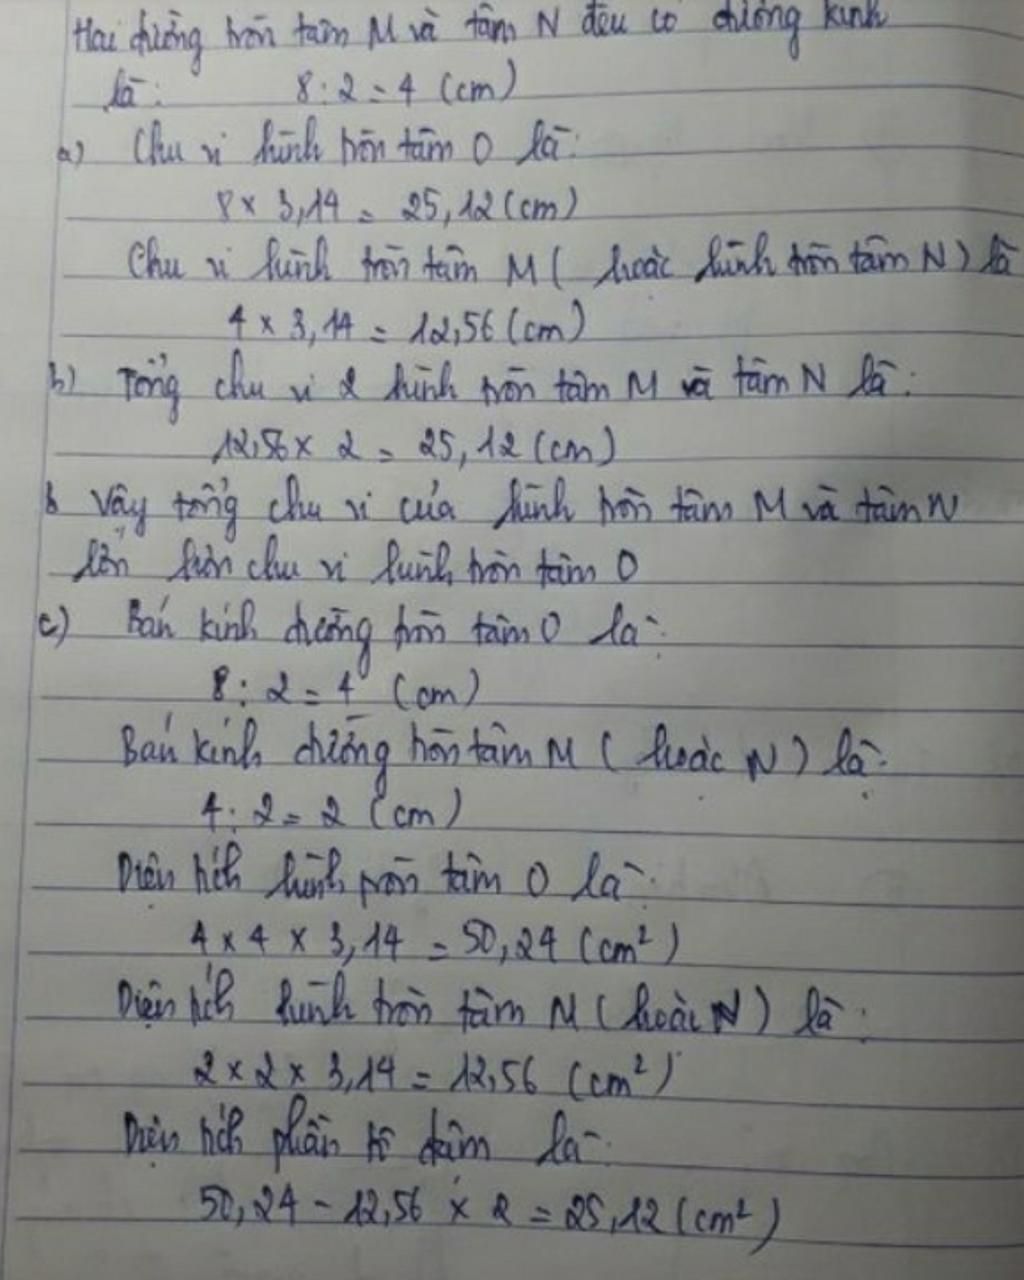 Hai đường tròn tâm M và tâm N đều có đường kính
là: 8 : 2 = 4 (cm)
a) Chu vi hình tròn tâm O là:
8 × 3,14 = 25,12 (cm)
Chu vi hình tròn tâm M ( hoặc hình tròn tâm N) là
4 × 3,14 = 12,56 (cm)
b) Tổng chu vi 2 hình tròn tâm M và tâm N là:
12,56 × 2 = 25,12 (cm)
Vậy tổng chu vi của hình tròn tâm M và tâm N
lớn hơn chu vi hình tròn tâm O
c) Bán kính đường tròn tâm O là:
8 : 2 = 4 (cm)
Bán kính đường tròn tâm M ( hoặc N ) là:
4 : 2 = 2 (cm)
Diện tích hình tròn tâm O là:
4 × 4 × 3,14 = 50,24 (cm²)
Diện tích hình tròn tâm M ( hoặc N ) là:
2 × 2 × 3,14 = 12,56 (cm²)
Diện tích phần tô đậm là:
50,24 - 12,56 × 2 = 25,12 (cm²)